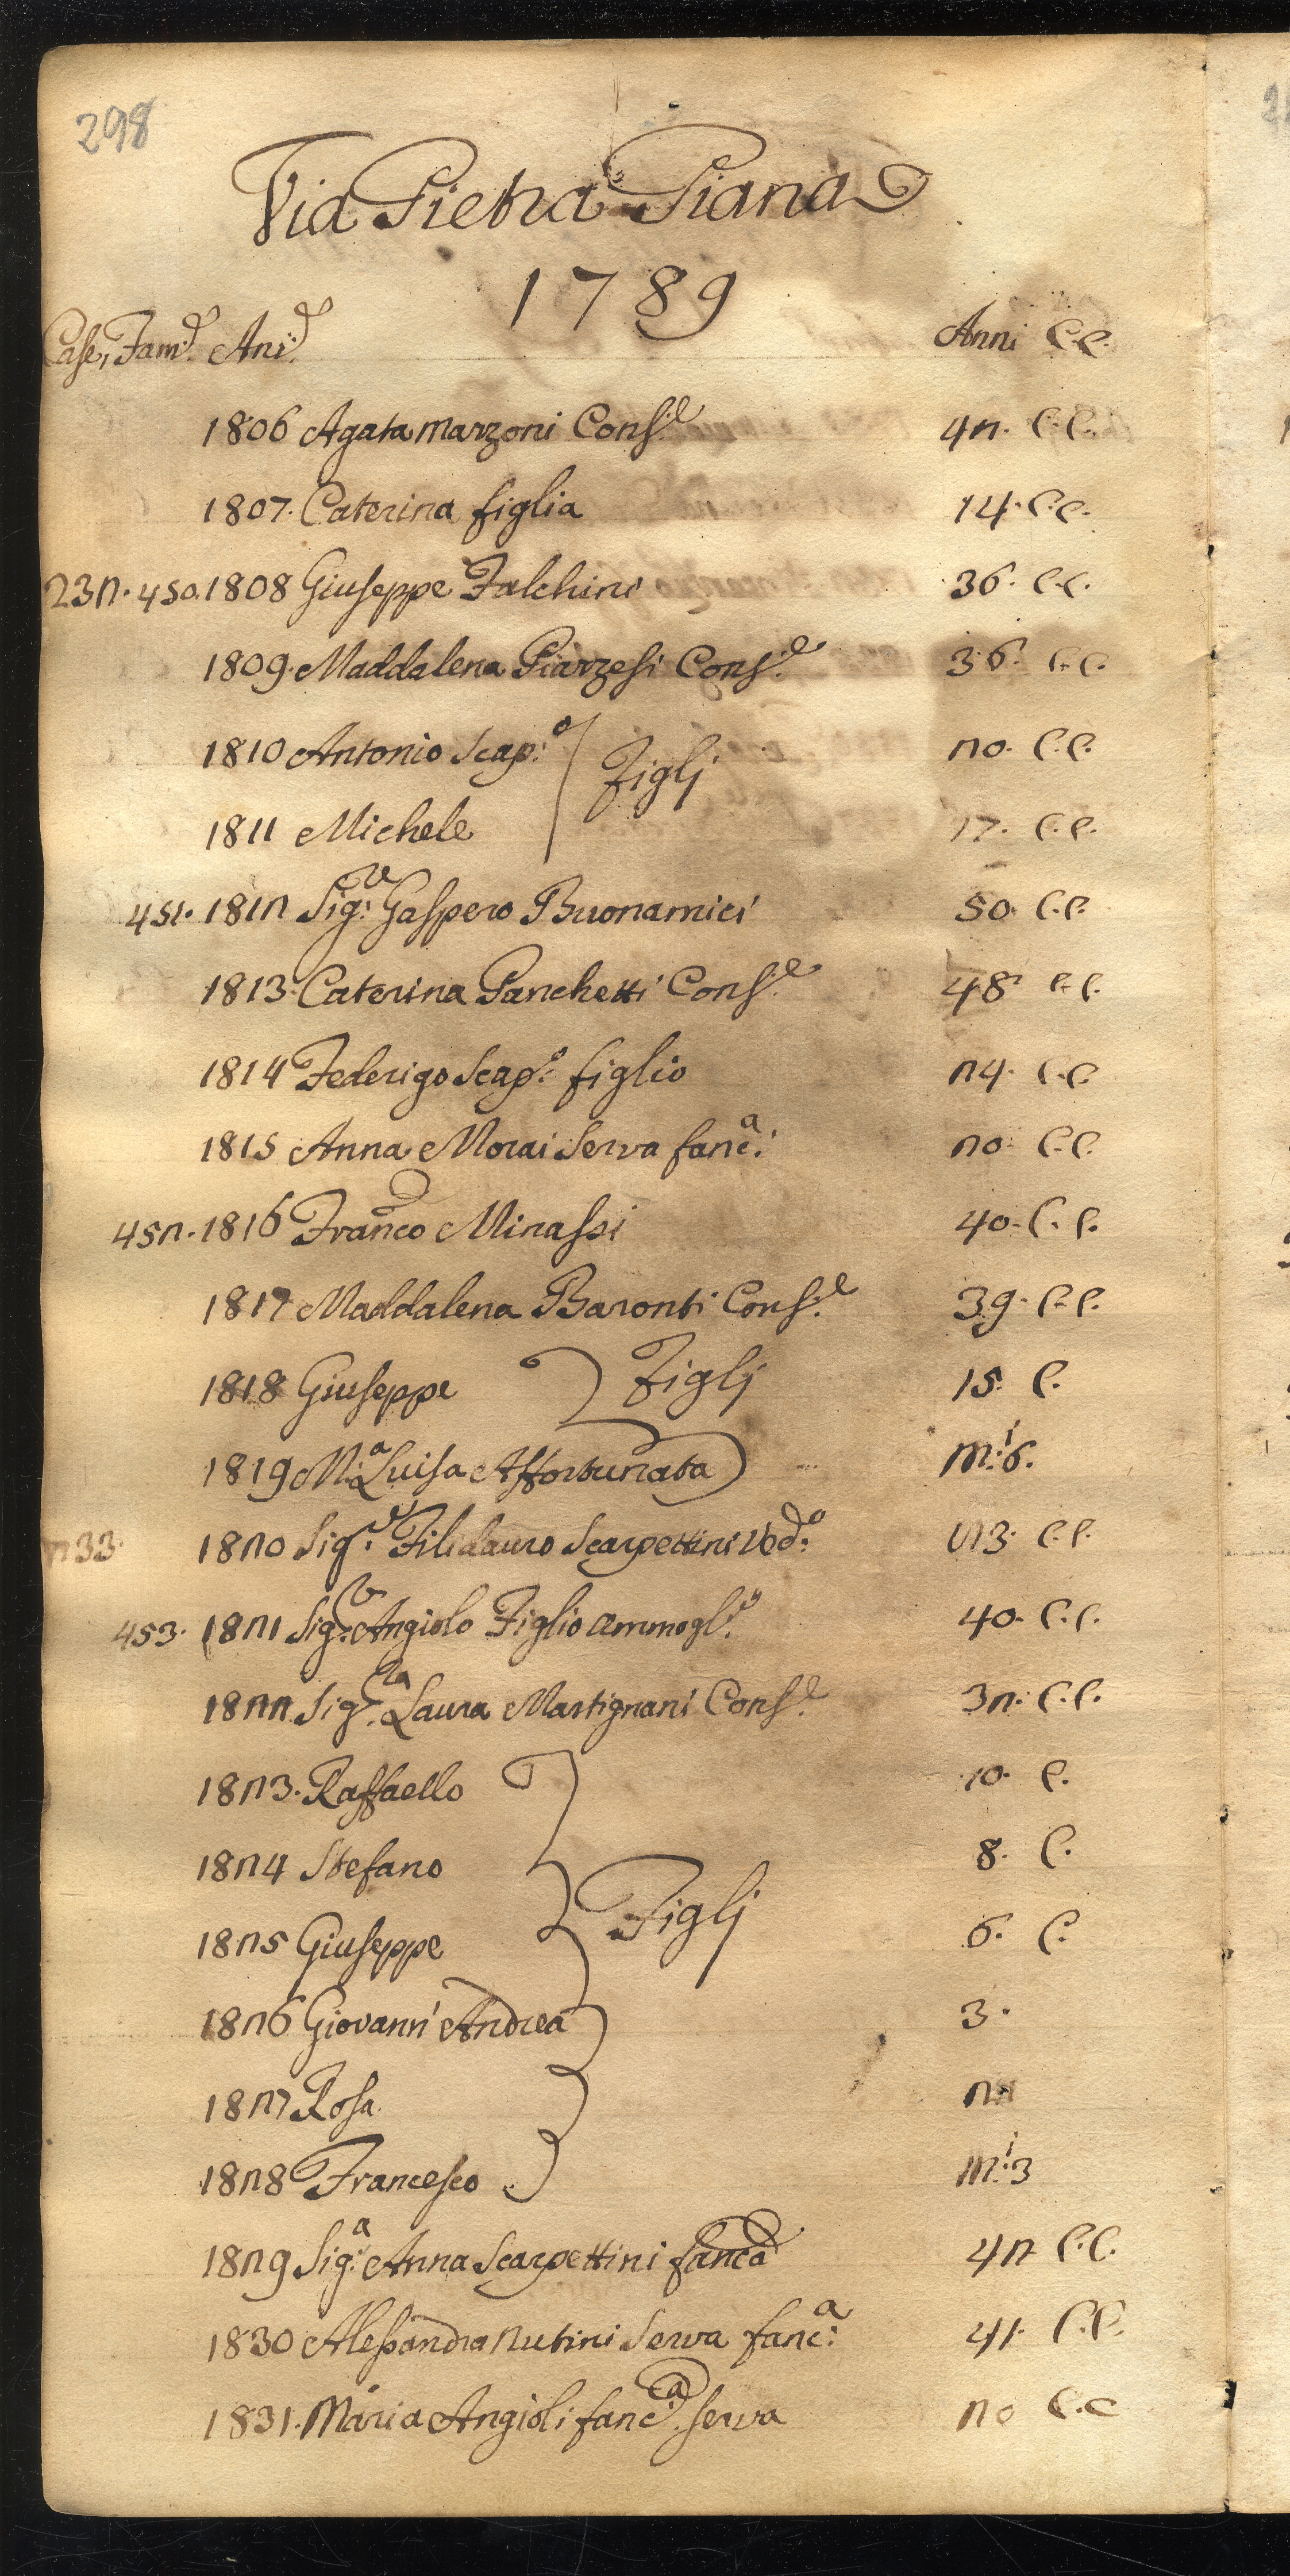 298
Via Pietra Piana
1789
Case, Fam.e Ani.e Anni C.C.
1806 Agata Marzoni Cons.e 42. C.C.
1807. Caterina figlia 14. C.C.
232. 450. 1808 Giuseppe Falchini 36. C.C.
1809. Maddalena Piarzesi Cons.e 36. C.C.
1810 Antonio Scap:o 20. C.C.
Figlj
1811 Michele 17. C.C.
451. 1812 Sig.r Gaspero Buonamici 50. C.C.
1813. Caterina Panchetti Cons.e 48 C.C.
1814 Federigo Scap:o figlio 24. C.C.
1815 Anna Morai Serva fanc:a 20. C.C.
452. 1816 Franco Minassi 40. C.C.
1817 Maddalena Baronti Cons.e 39. C.C.
1818 Giuseppe Figlj 15. C.
1819 M.a Luisa Affortunata M:i 6.
233. 1820 Sig.r Filidauro Scarpettini Ved:o 73. C.C.
453. 1821 Sig.r Angiolo Figlio ammogl.o 40. C.C.
1822 Sig.ra Laura Martignani Cons.e 32. C.C.
1823. Raffaello 10. C.
1824 Stefano 8. C.
Figlj
1825 Giuseppe 6. C.
1826 Giovanni Andrea 3.
1827 Rosa
1828 Francesco M:i 3
1829 Sig:a Anna Scarpettini fanca 42 C.C.
1830 Alessandra Nutini Serva fanc:a 41. C.C.
1831. Maria Angioli fanc:a serva 20 C.C